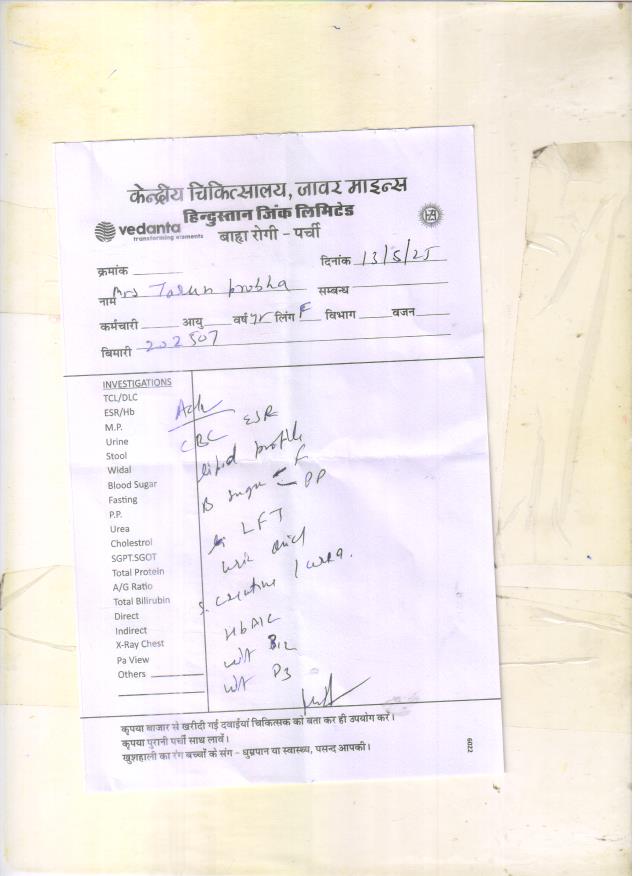 केन्द्रीय चिकित्सालय, जावर माइन्स
हिन्दुस्तान जिंक लिमिटेड
vedanta
transforming elements
बाह्य रोगी - पर्ची
क्रमांक दिनांक 13/5/25
नाम Mrs Tarun prabha सम्बन्ध
कर्मचारी आयु वर्ष लिंग F विभाग वजन
बिमारी 202507
INVESTIGATIONS
TCL/DLC
ESR/Hb
M.P.
Urine
Stool
Widal
Blood Sugar
Fasting
P.P.
Urea
Cholestrol
SGPT.SGOT
Total Protein
A/G Ratio
Total Bilirubin
Direct
Indirect
X-Ray Chest
Pa View
Others
Adv
CBC ESR
lipid profile
B sugar F
PP
LFT
uric acid
S. creatine / urea.
HbA1C
vit B12
vit D3
कृपया बाजार से खरीदी गई दवाईयां चिकित्सक को बता कर ही उपयोग करें।
कृपया पुरानी पर्ची साथ लावें।
खुशहाली का रंग बच्चों के संग - धुम्रपान या स्वास्थ्य, पसन्द आपकी।
6022